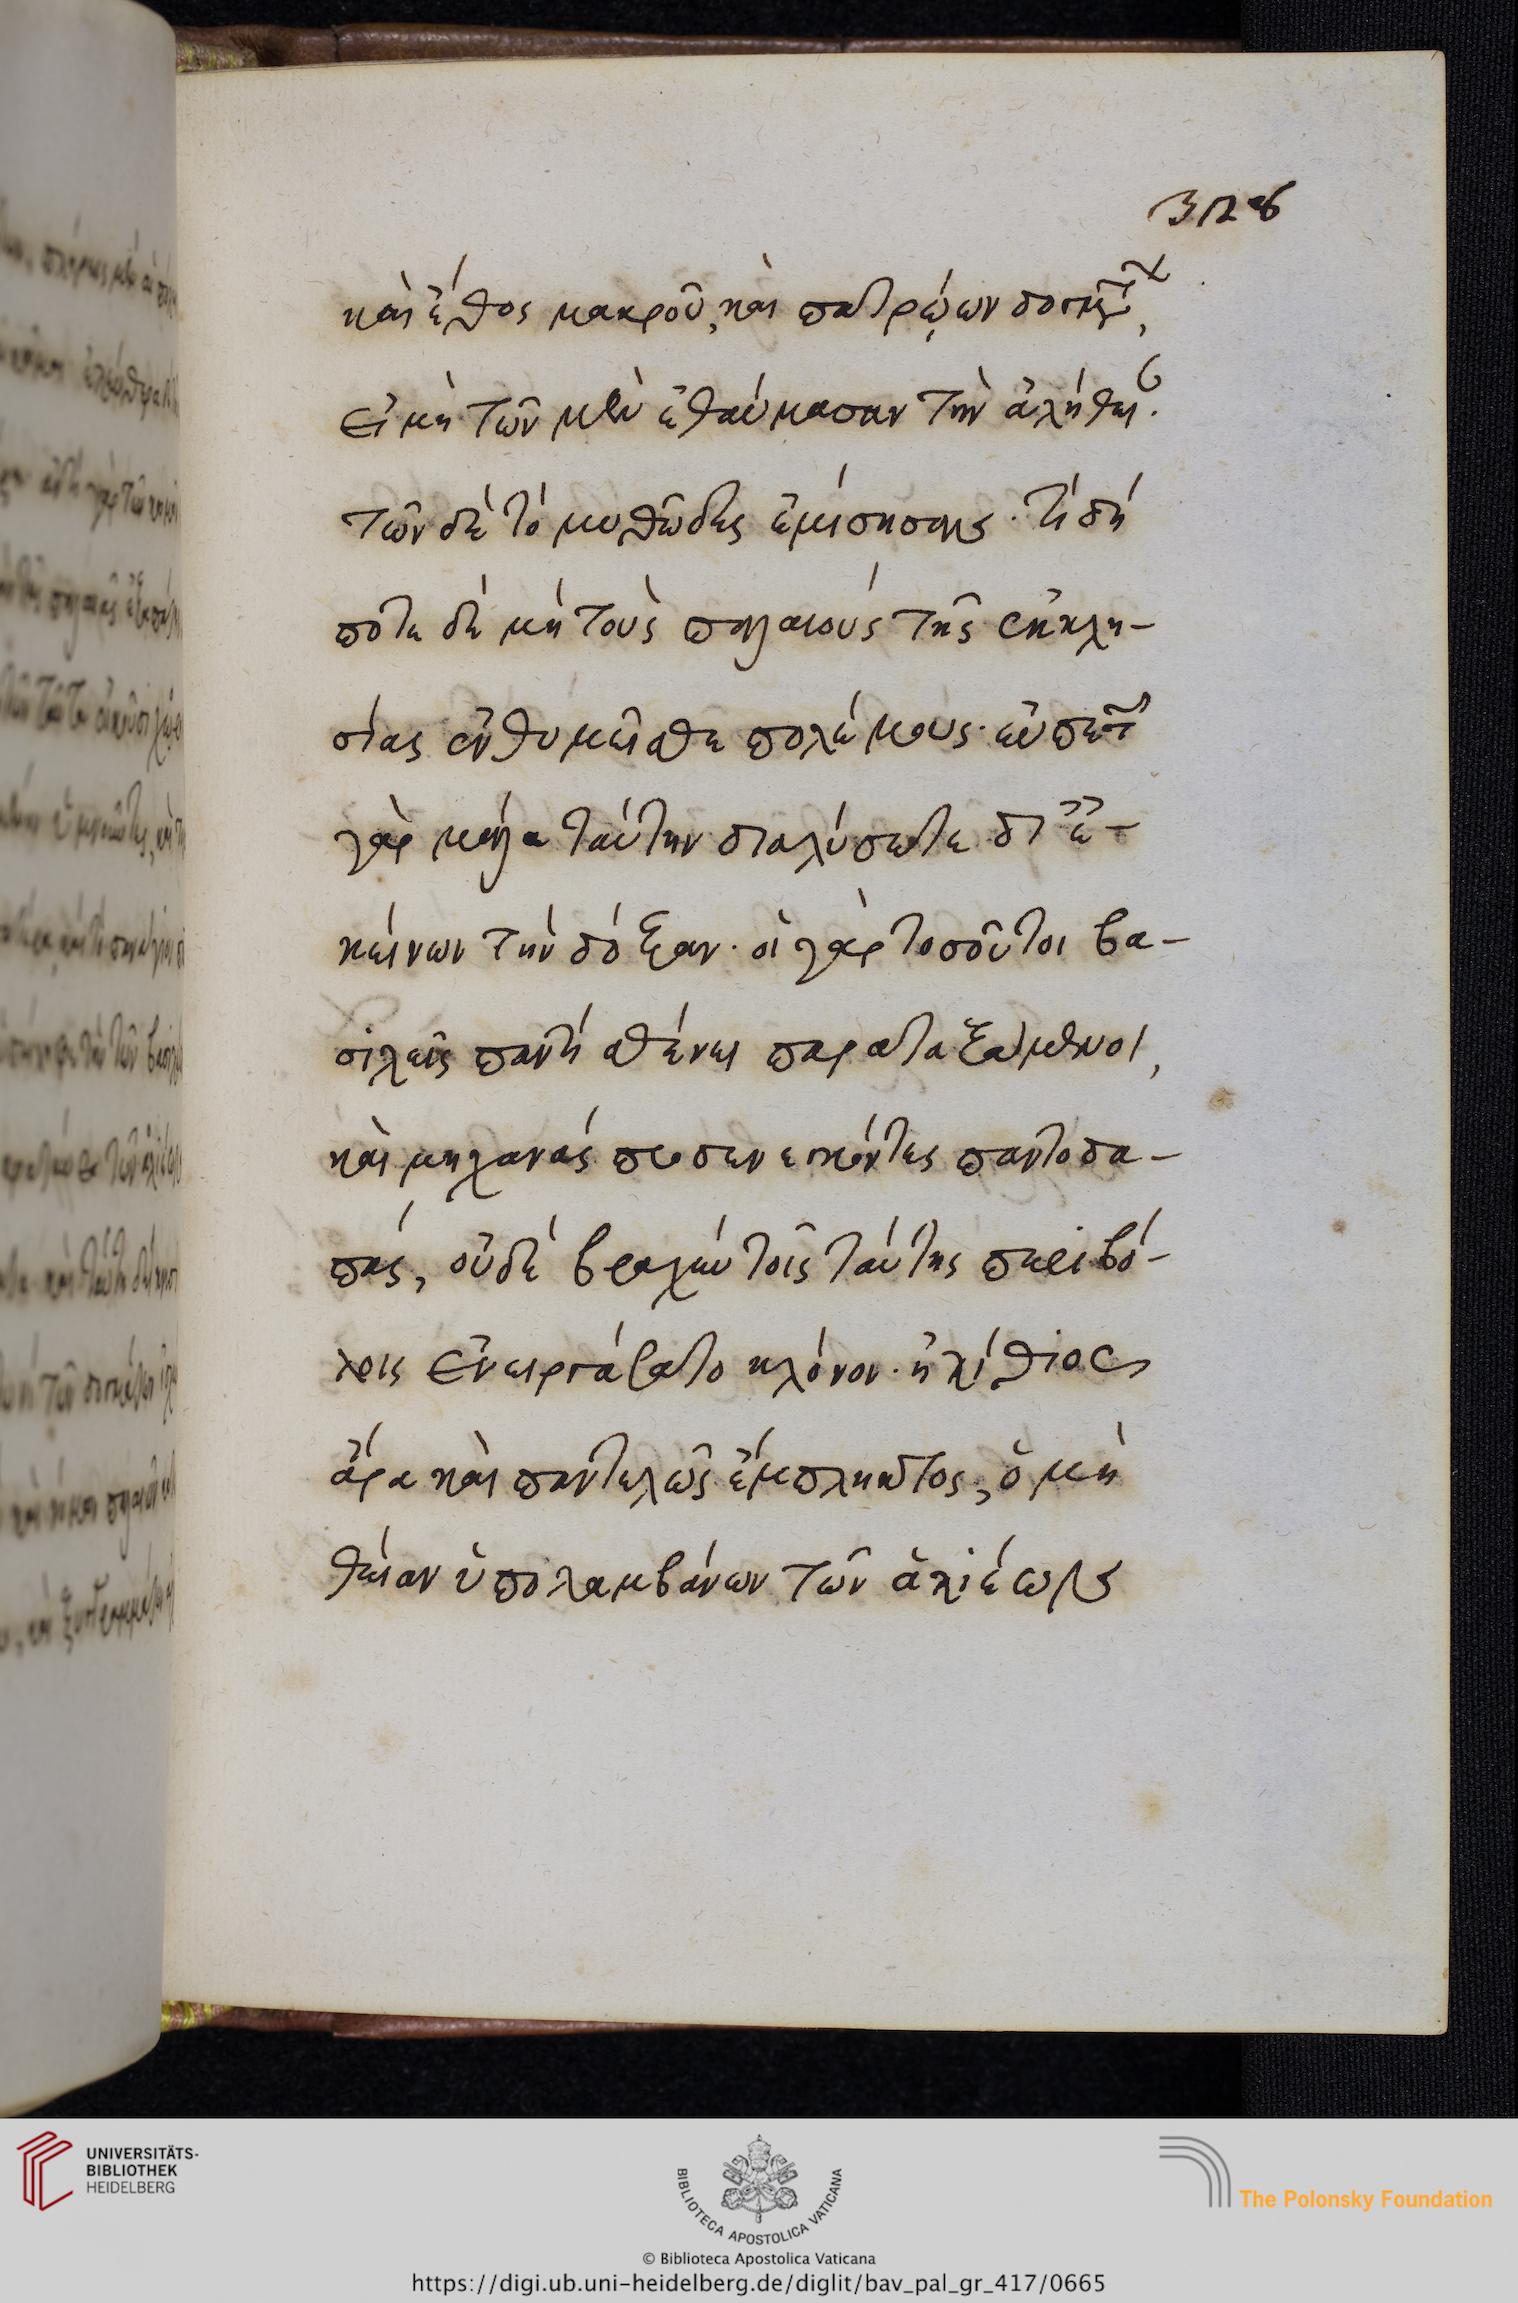 3126
καὶ ἔθος μακροῦ, καὶ πατρῴων δογμάτων,
εἰ μὴ τῶν μὲν ἐθαύμασαν τὴν ἀλήθειαν.
τῶν δὲ τὸ μυθῶδες ἐμίσησαν. τί δή
ποτε δὲ μὴ τοὺς παλαιοὺς τῆς ἐκκλη-
σίας ἐνθυμεῖσθε πολέμους. εὐπετῶς
γὰρ μάλα ταύτην διαλύσετε δι' ἐ-
κείνων τὴν δόξαν. οἱ γὰρ τοσοῦτοι βα-
σιλεῖς παντὶ σθένει παραταξάμενοι,
καὶ μηχανὰς προσενεγκόντες παντοδα-
πάς, οὐδὲ βραχὺν τοῖς ταύτης περιβό-
λοις ἐνειργάσατο κλόνον. ἠλίθιος
ἄρα καὶ παντελῶς ἔμπληκτος, ὁ μὴ
θείαν ὑπολαμβάνων τῶν ἁλιέων
UNIVERSITÄTS-
BIBLIOTHEK
HEIDELBERG
BIBLIOTECA APOSTOLICA VATICANA
© Biblioteca Apostolica Vaticana
The Polonsky Foundation
https://digi.ub.uni-heidelberg.de/diglit/bav_pal_gr_417/0665